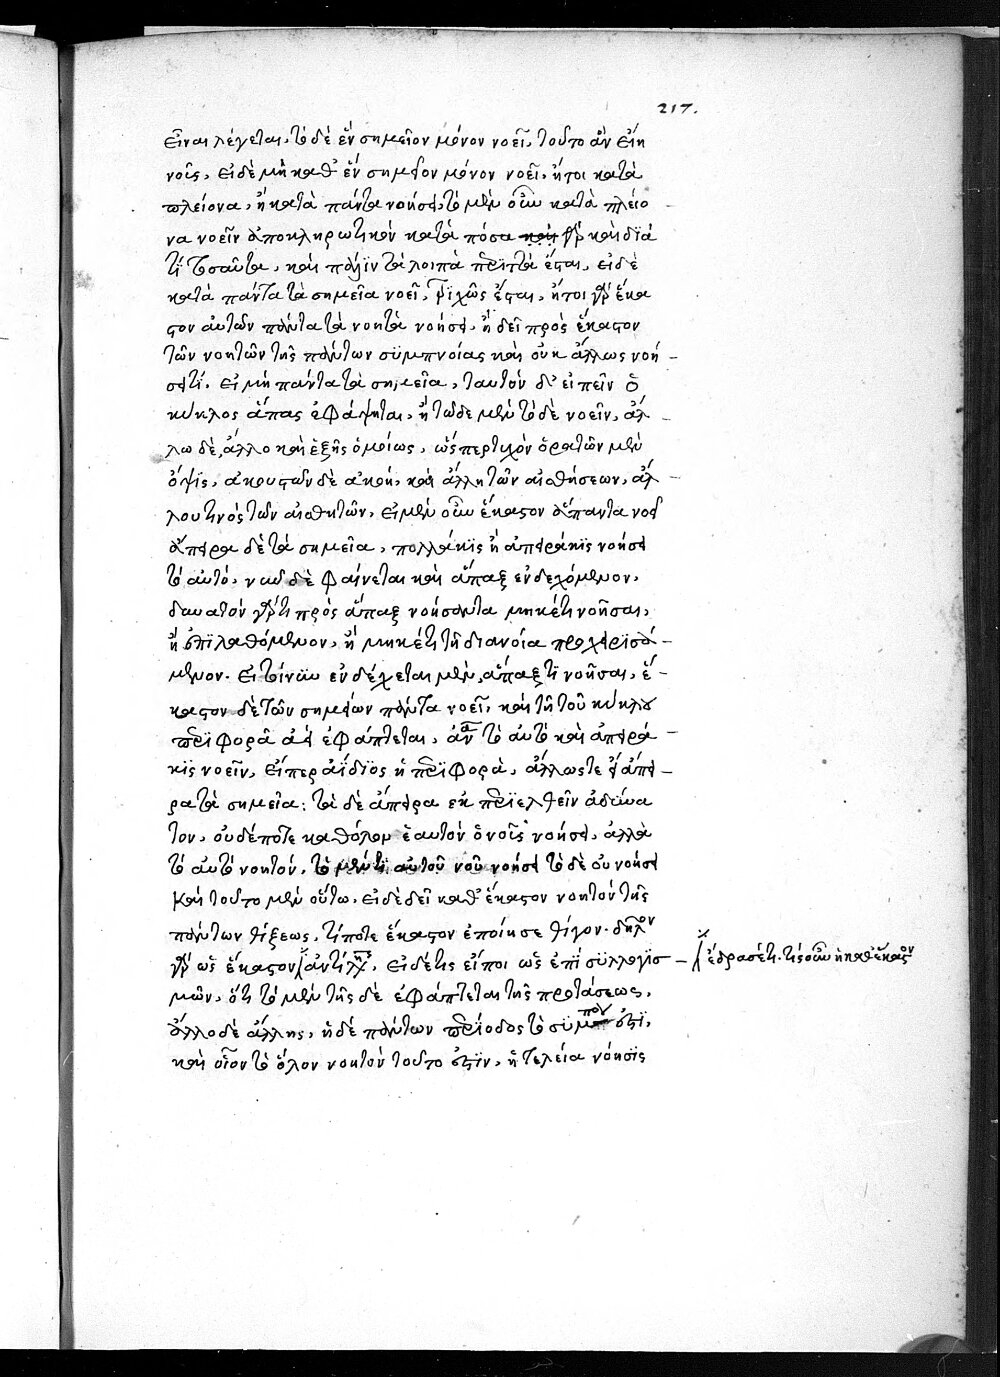 217.
εἶναι λέγεται, τὸ δὲ ἓν σημεῖον μόνον νοεῖ, τοῦτο ἂν εἴη
νοῦς. εἰ δὲ μὴ καθ' ἓν σημεῖον μόνον νοεῖ, ἤτοι κατὰ
πλείονα, ἢ κατὰ πάντα νοήσει, τὸ μὲν οὖν κατὰ πλείο
να νοεῖν ἀποκληρωτικόν κατὰ πόσα γὰρ καὶ διὰ
τί τοσαῦτα, καὶ πάλιν τὰ λοιπὰ περιττὰ ἔσται, εἰ δὲ
κατὰ πάντα τὰ σημεῖα νοεῖ, τριχῶς ἔσται, ἤτοι γὰρ ἕκα
στον αὐτῶν πάντα τὰ νοητὰ νοήσει, ἢ δεῖ πρὸς ἕκαστον
τῶν νοητῶν τῆς πάντων συμπνοίας καὶ οὐκ ἄλλως νοή
σει τί. εἰ μὴ πάντα τὰ σημεῖα, ταυτὸν δ' εἰπεῖν ὁ
κύκλος ἅπας ἐφάψηται, ἢ τῷδε μὲν τόδε νοεῖν, ἄλ
λῳ δὲ, ἄλλο καὶ ἑξῆς ὁμοίως, ὥσπερ τυχὸν ὁρατῶν μὲν
ὄψις, ἀκουστῶν δὲ ἀκοή, καὶ ἄλλη τῶν αἰσθήσεων, ἄλ
λου τινός τῶν αἰσθητῶν, εἰ μὲν οὖν ἕκαστον ἅπαντα νοεῖ
ἄπειρα δὲ τὰ σημεῖα, πολλάκις ἢ ἀπειράκις νοήσει
τὸ αὐτό, νῷ δὲ φαίνεται καὶ ἅπαξ ἐνδεχόμενον,
ἀδύνατόν γὰρ τι πρὸς ἅπαξ νοήσαντα μηκέτι νοῆσαι,
ἢ ἐπιλαθόμενον, ἢ μηκέτι τῇ διανοίᾳ προχειρισά
μενον. εἰ τοίνυν ἐνδέχεται μὲν, ἅπαξ τι νοῆσαι, ἕ
καστον δὲ τῶν σημείων πάντα νοεῖ, καὶ τῇ τοῦ κύκλου
περιφορᾷ ἀεὶ ἐφάπτεται, τὸ αὐτὸ καὶ ἀπειρά
κις νοεῖν, εἴπερ ἀΐδιος ἡ περιφορὰ, ἄλλως τε εἰ ἄπει
ρα τὰ σημεῖα: τὰ δὲ ἄπειρα ἐκπεριελθεῖν ἀδύνα
τον, οὐδέποτε καθόλου ἑαυτὸν ὁ νοῦς νοήσει, ἀλλὰ
τὸ αὐτὸ νοητόν, τὸ μέν τι αὐτοῦ νοῦ νοήσει τὸ δὲ οὐ νοήσει
καὶ τοῦτο μὲν οὕτω. εἰ δὲ δεῖ καθ' ἕκαστον νοητὸν τῆς
πάντων θίξεως, τί ποτε ἕκαστον ἐποίησε θίγον. δῆλον
γὰρ ὡς ἕκαστον ἀντιλ. εἰ δέ τις εἴποι ὡς ἐπὶ συλλογισ
ἔδρασέ τι. τίς οὖν ἡ καθ' ἕκαστον
μῶν, ὅτι τὸ μὲν τῆς δὲ ἐφάπτεται τῆς προτάσεως,
ἄλλο δὲ ἄλλης, ἡ δὲ πάντων περίοδος τὸ σύμπαν ἐστί,
καὶ οἷον τὸ ὅλον νοητὸν τοῦτο ἐστὶν, ἡ τελεία νόησις